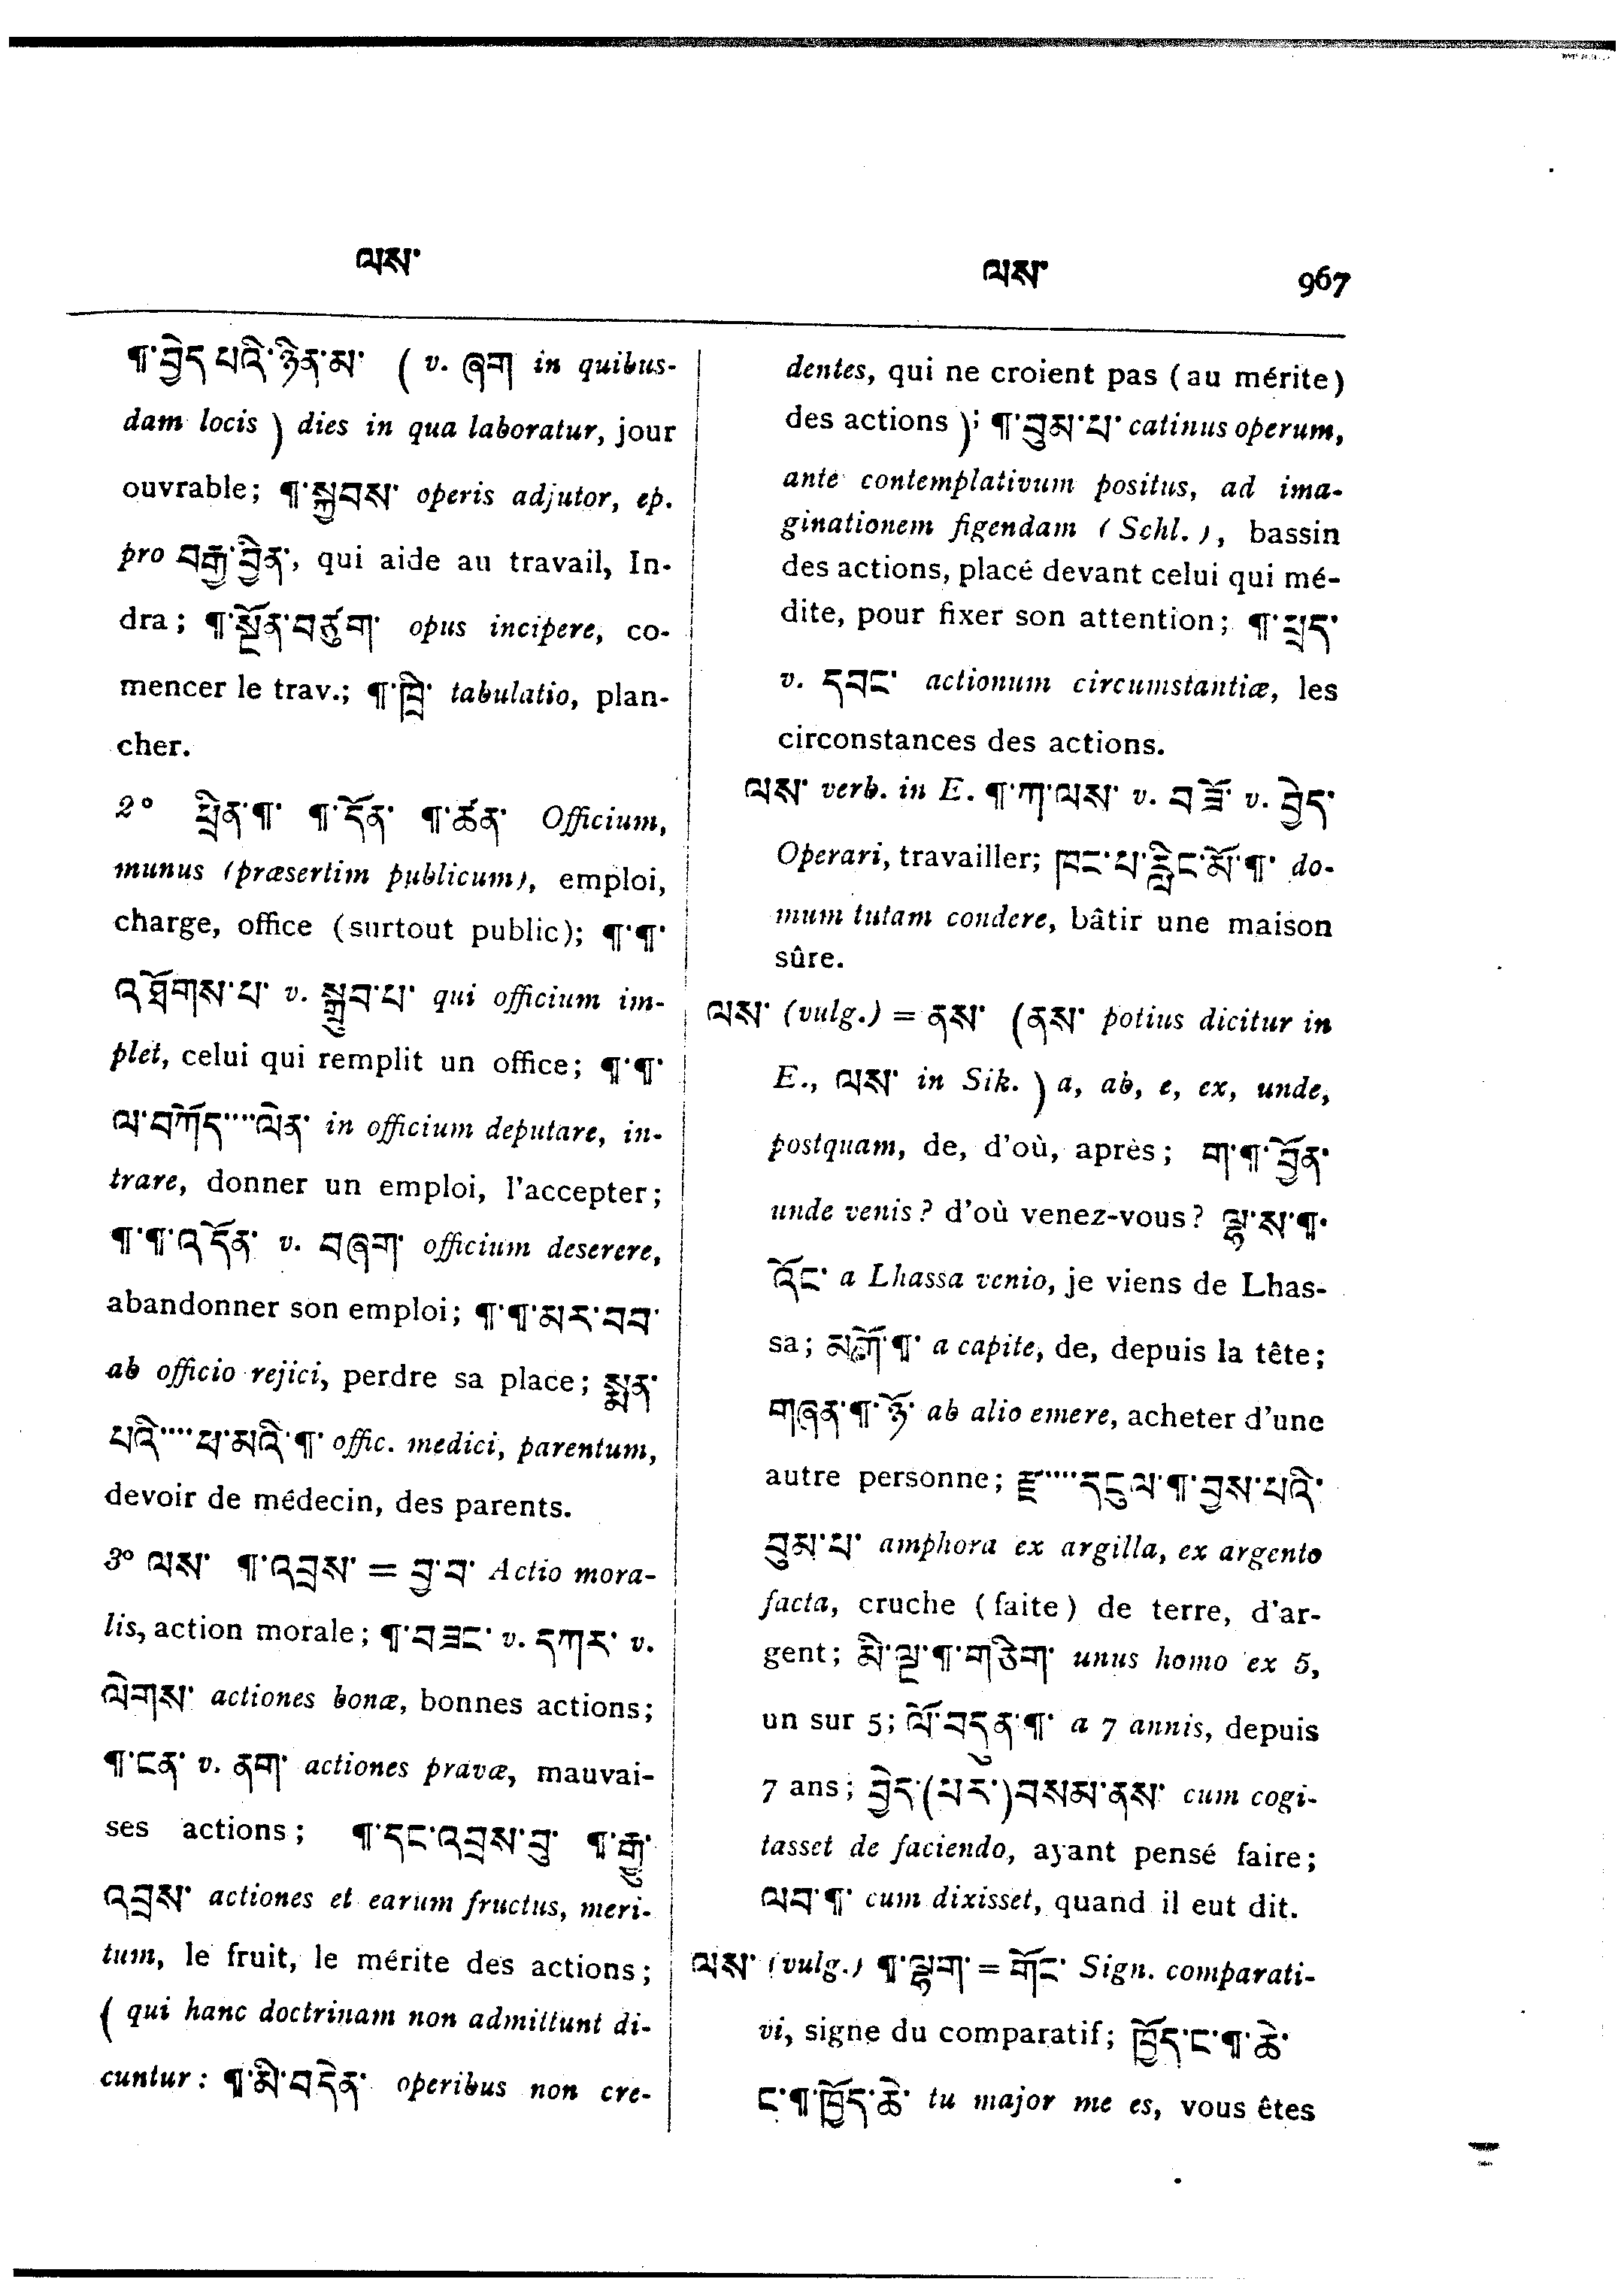 ལས་
ལས་ 967
¶་བྱེད་པའི་ཉིན་མ་ ( v. ཞག in quibus-
dam locis ) dies in qua laboratur, jour
ouvrable; ¶་སྐྱབས་ operis adjutor, ep.
pro བརྒྱ་བྱིན་, qui aide au travail, In-
dra; ¶་སྔོན་བཙུག་ opus incipere, co-
mencer le trav.; ¶་ཁྲི་ tabulatio, plan-
cher.
2° ཕྲིན་¶་ ¶་དོན་ ¶་ཚན་ Officium,
munus (præsertim publicum), emploi,
charge, office (surtout public); ¶་¶་
འཐོགས་པ་ v. སྒྲུབ་པ་ qui officium im-
plet, celui qui remplit un office; ¶་¶་
ལ་བཀོད་····ལེན་ in officium deputare, in-
trare, donner un emploi, l'accepter;
¶་¶་འདོན་ v. བཞག་ officium deserere,
abandonner son emploi; ¶་¶་མར་བབ་
ab officio rejici, perdre sa place; སྨན་
པའི་····ཕ་མའི་¶་ offic. medici, parentum,
devoir de médecin, des parents.
3° ལས་ ¶་འབྲས་ = བྱ་བ་ Actio mora-
lis, action morale; ¶་བཟང་ v. དཀར་ v.
ལེགས་ actiones bonæ, bonnes actions;
¶་ངན་ v. ནག་ actiones pravæ, mauvai-
ses actions; ¶་དང་འབྲས་བུ་ ¶་རྒྱུ་
འབྲས་ actiones et earum fructus, meri-
tum, le fruit, le mérite des actions;
( qui hanc doctrinam non admittunt di-
cuntur: ¶་མི་བདེན་ operibus non cre-
dentes, qui ne croient pas (au mérite)
des actions ); ¶་བུམ་པ་ catinus operum,
ante contemplativum positus, ad ima-
ginationem figendam (Schl.), bassin
des actions, placé devant celui qui mé-
dite, pour fixer son attention; ¶་སྲད་
v. དབང་ actionum circumstantiæ, les
circonstances des actions.
ལས་ verb. in E. ¶་ཀ་ལས་ v. བཟོ་ v. བྱེད་
Operari, travailler; ཁང་པ་རླིང་མོ་¶་ do-
mum tutam condere, bâtir une maison
sûre.
ལས་ (vulg.) = ནས་ (ནས་ potius dicitur in
E., ལས་ in Sik. ) a, ab, e, ex, unde,
postquam, de, d'où, après; ག་¶་བྱོན་
unde venis? d'où venez-vous? ལྷ་ས་¶་
འོང་ a Lhassa venio, je viens de Lhas-
sa; མགོ་¶་ a capite, de, depuis la tête;
གཞན་¶་ཉོ་ ab alio emere, acheter d'une
autre personne; རྫ་····དངུལ་¶་བྱས་པའི་
བུམ་པ་ amphora ex argilla, ex argento
facta, cruche (faite) de terre, d'ar-
gent; མི་ལྔ་¶་གཅིག་ unus homo ex 5,
un sur 5; ལོ་བདུན་¶་ a 7 annis, depuis
7 ans; བྱེད་(པར་)བསམ་ནས་ cum cogi-
tasset de faciendo, ayant pensé faire;
ལབ་¶་ cum dixisset, quand il eut dit.
ལས་ (vulg.) ¶་ལྷག་ = གོང་ Sign. comparati-
vi, signe du comparatif; ཁྱོད་ང་¶་ཆེ་
ང་¶་ཁྱོད་ཆེ་ tu major me es, vous êtes